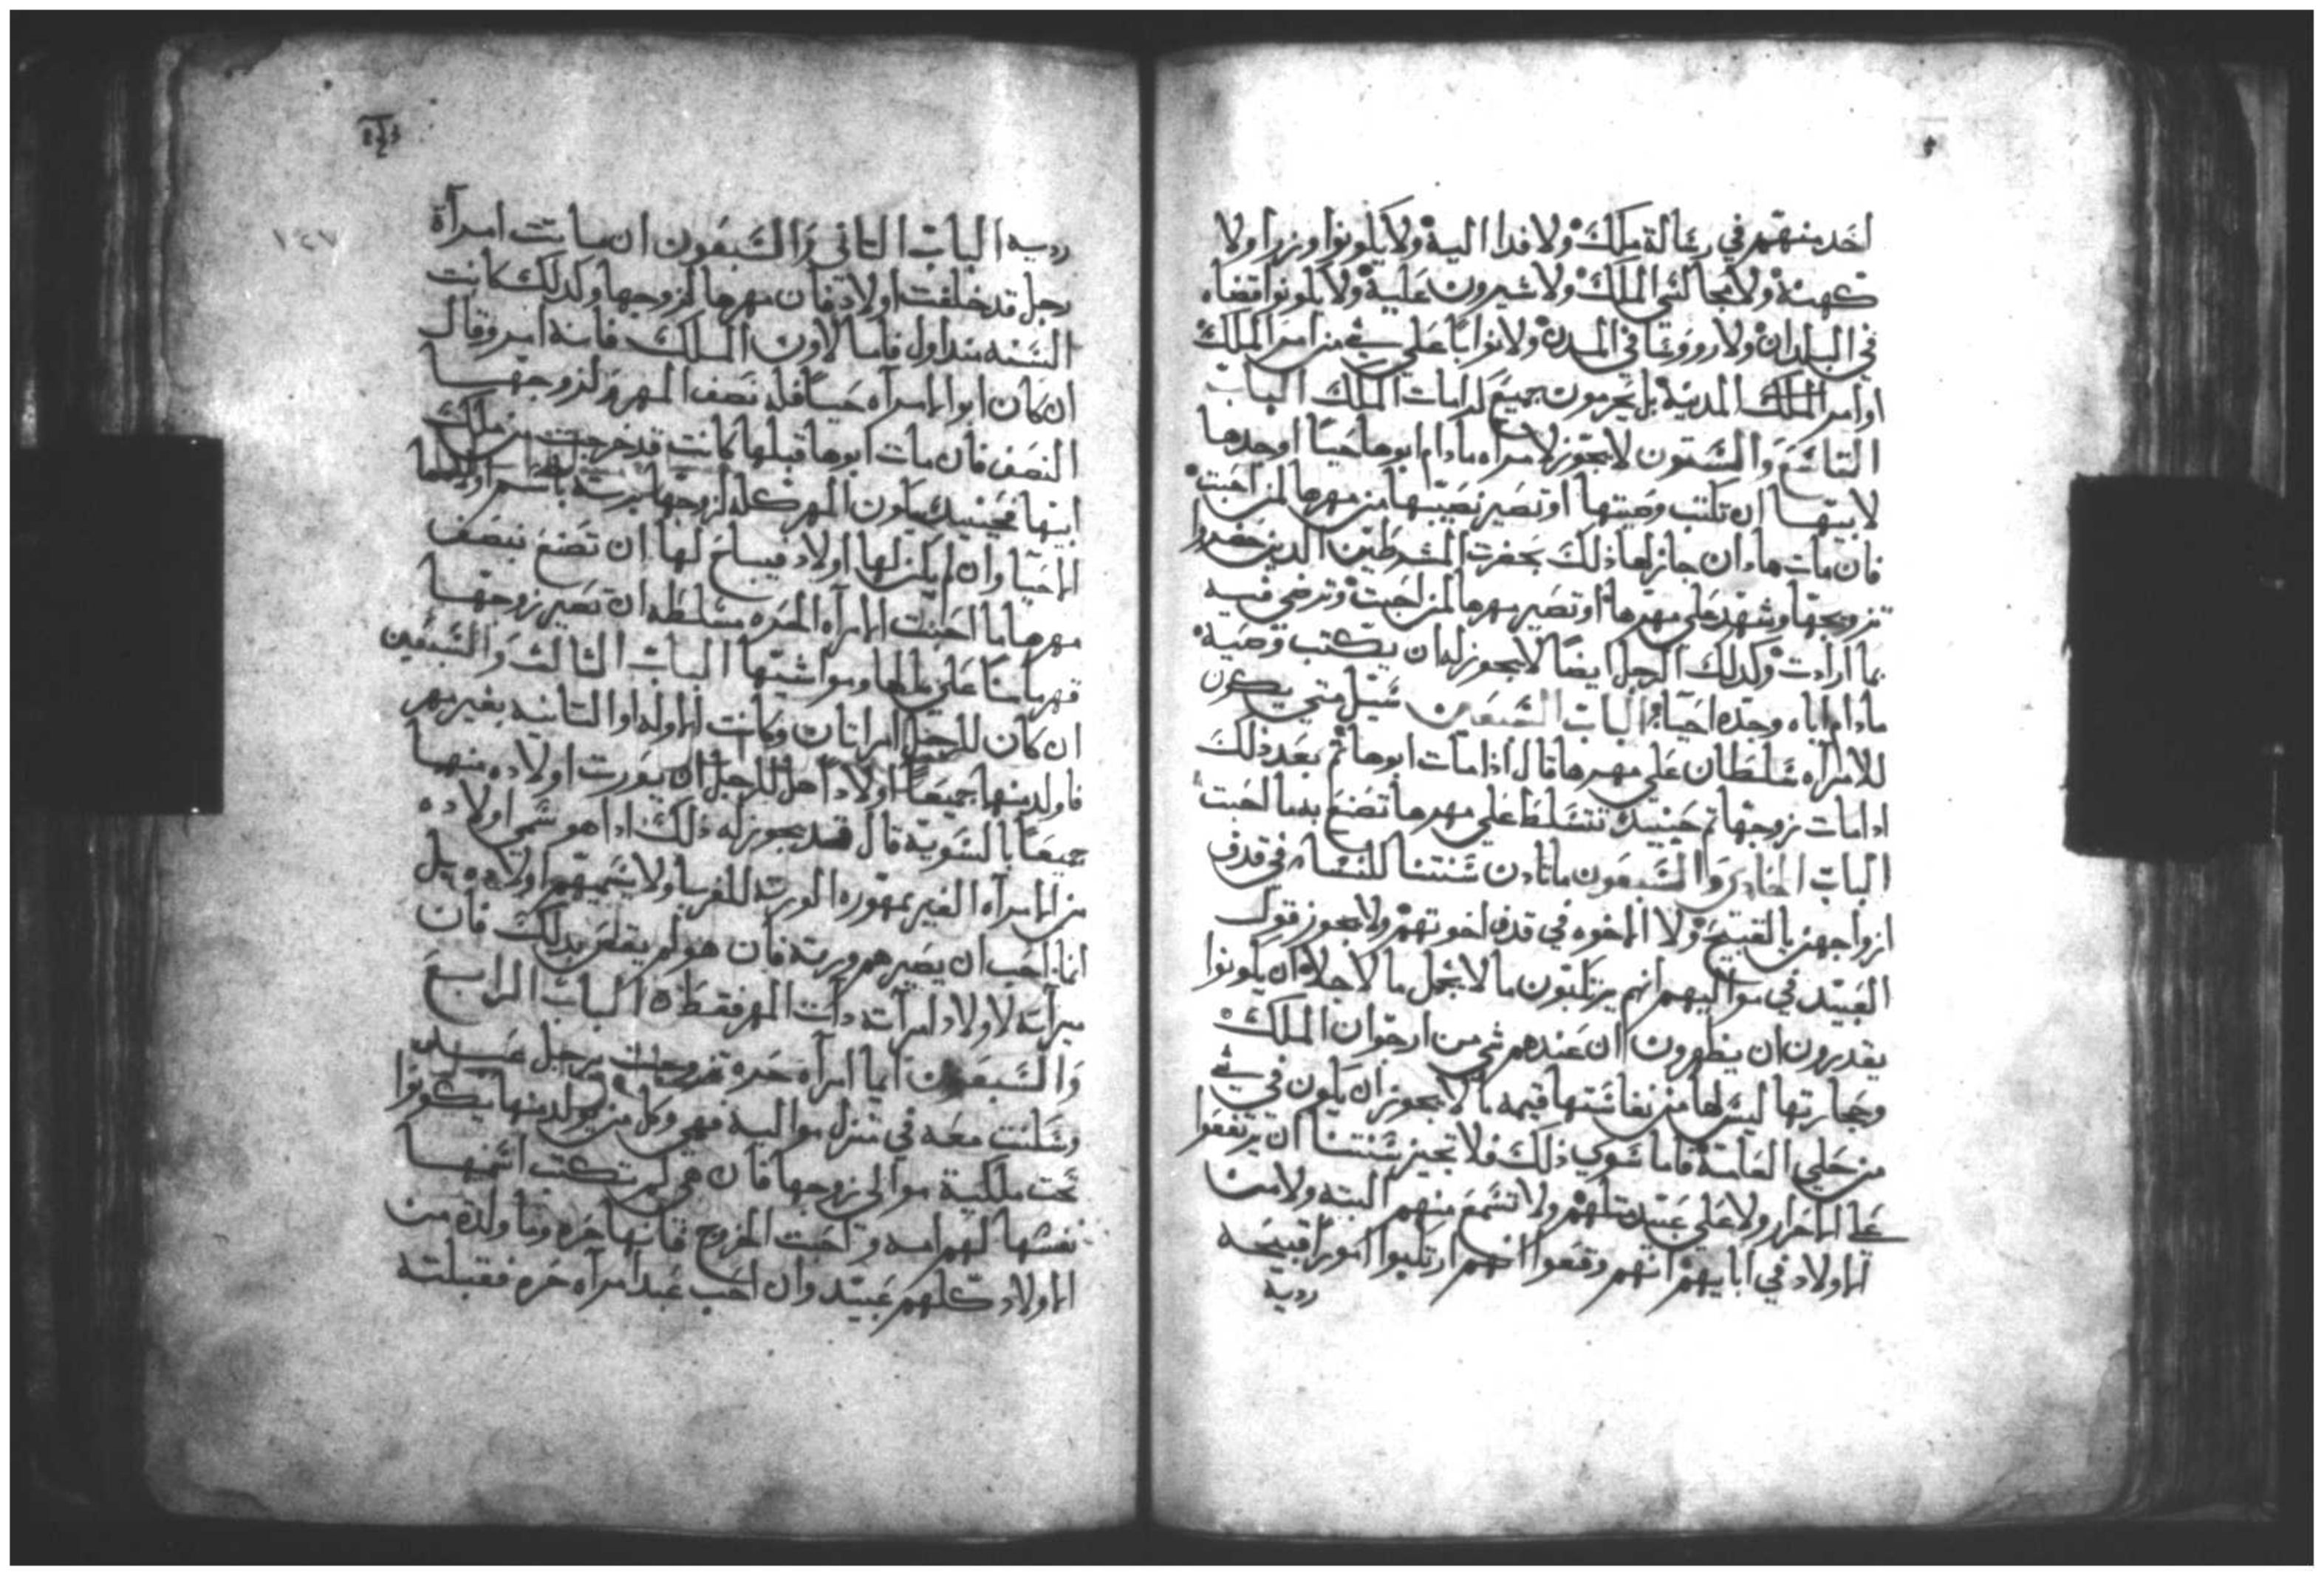 احد منهم في رسالة ملك ولا فدا اليه ولا يكونوا وزرا ولا
كهنة ولا مجالسي الملك ولا شيرون عليه ولا يكونوا قضاه
في البلدان ولا رووسا في المدن ولا نوابا علي شي من امر الملك
او امر الملك المدنية بل يحرمون جميع كرامات الملك الباب
التاسع والستون لا يجوز لامراه مادام ابوها حيا او جدها
لابيها ان تكتب وصيتها او تصير نصيبها من مهرها لمن احبت
فان مات هاو ان جاز لها ذلك بحضرت الشرطين الدين حضروا
تزويجها وشهد علي مهرها او تصير مهرها لمن احبت وترضي فيه
بما ارادت وكدلك الرجل ايضا لا يجوز له ان يكتب وصية
مادام اباه وجده احيا الباب السبعين سيل متي يكون
للامراه سلطان علي مهرها قال ادا مات ابوها تم بعد ذلك
ادا مات زوجها تم حينيد تتسلط علي مهرها تصنع به ما احبت
الباب الحادي والسبعون ما تادن سنتنا للنسا في قدف
ازواجهن بالقبيح ولا الاخوه في قدف اخوتهم ولا يجوز قول
العبيد في مواليهم انهم يرتكبون ما لا يجمل ما لاجلاه ان يكونوا
يقدرون ان يظهرون ان عندهم شي من ارجوان الملك
وحجارتها ليس لها من نفاستها قيمه ما لا يجوز ان يكون في شي
من حلي العامة فاما سوي ذلك فلا تجيز سنتنا ان يرتفعوا
علي الاحرار ولا علي عبيد مثلهم ولا تسمع منهم البته ولا من
الاولاد في ابايهم انهم وقعوا انهم ارتكبوا امورا قبيحه
رديه
١٤٧
رديه الباب التاني والسبعون ان ماتت امراة
رجل قد خلفت اولاد فان مهرها لزوجها وكدلك كانت
السنه مند اول فاما لاون الملك فانه امر وقال
ان كان ابو الامراه حيا فله نصف المهر ولزوجها
النصف فان مات ابوها قبلها كانت قد خرجت من ملك
ابيها فحينيد يكون المهر كله لزوجها يرته باسم اولادها
الاحيا وان لم يكن لها اولاد فيباح لها ان تصنع بنصف
مهرها ما احبت الامراه الحره مسلطه ان تصير زوجها
قهرمانا علي مالها ومواشيها الباب الثالث والسبعين
ان كان للرجل امراتان وكانت الاوله او التانيه بغير مهر
فاولد منها جميعا اولادا هل للرجل ان يورت اولاده منهما
جميعا بالسويه قال قد يجوز له ذلك ادا هو سمي اولاده
من الامراه الغير ممهوره الورته للغربا ولا يسميهم اولاده بل
انا احب ان يصيرهم ورته فان هو لم يفعل بدلك فان
ميراته لاولاد امراته دات المهر فقط الباب الرابع
والسبعون ايما امراه حره تزوجت برجل عبد
وسكنت معه في منزل مواليه فهي وكل من يولد منها يكونوا
تحت ملكية موالي زوجها فان هي لم تكتب
نفسها لهم امه واحبت الخروج فانها حره وما ولدة من
الاولاد كلهم عبيد وان احب عبد امراه حره فقبلته